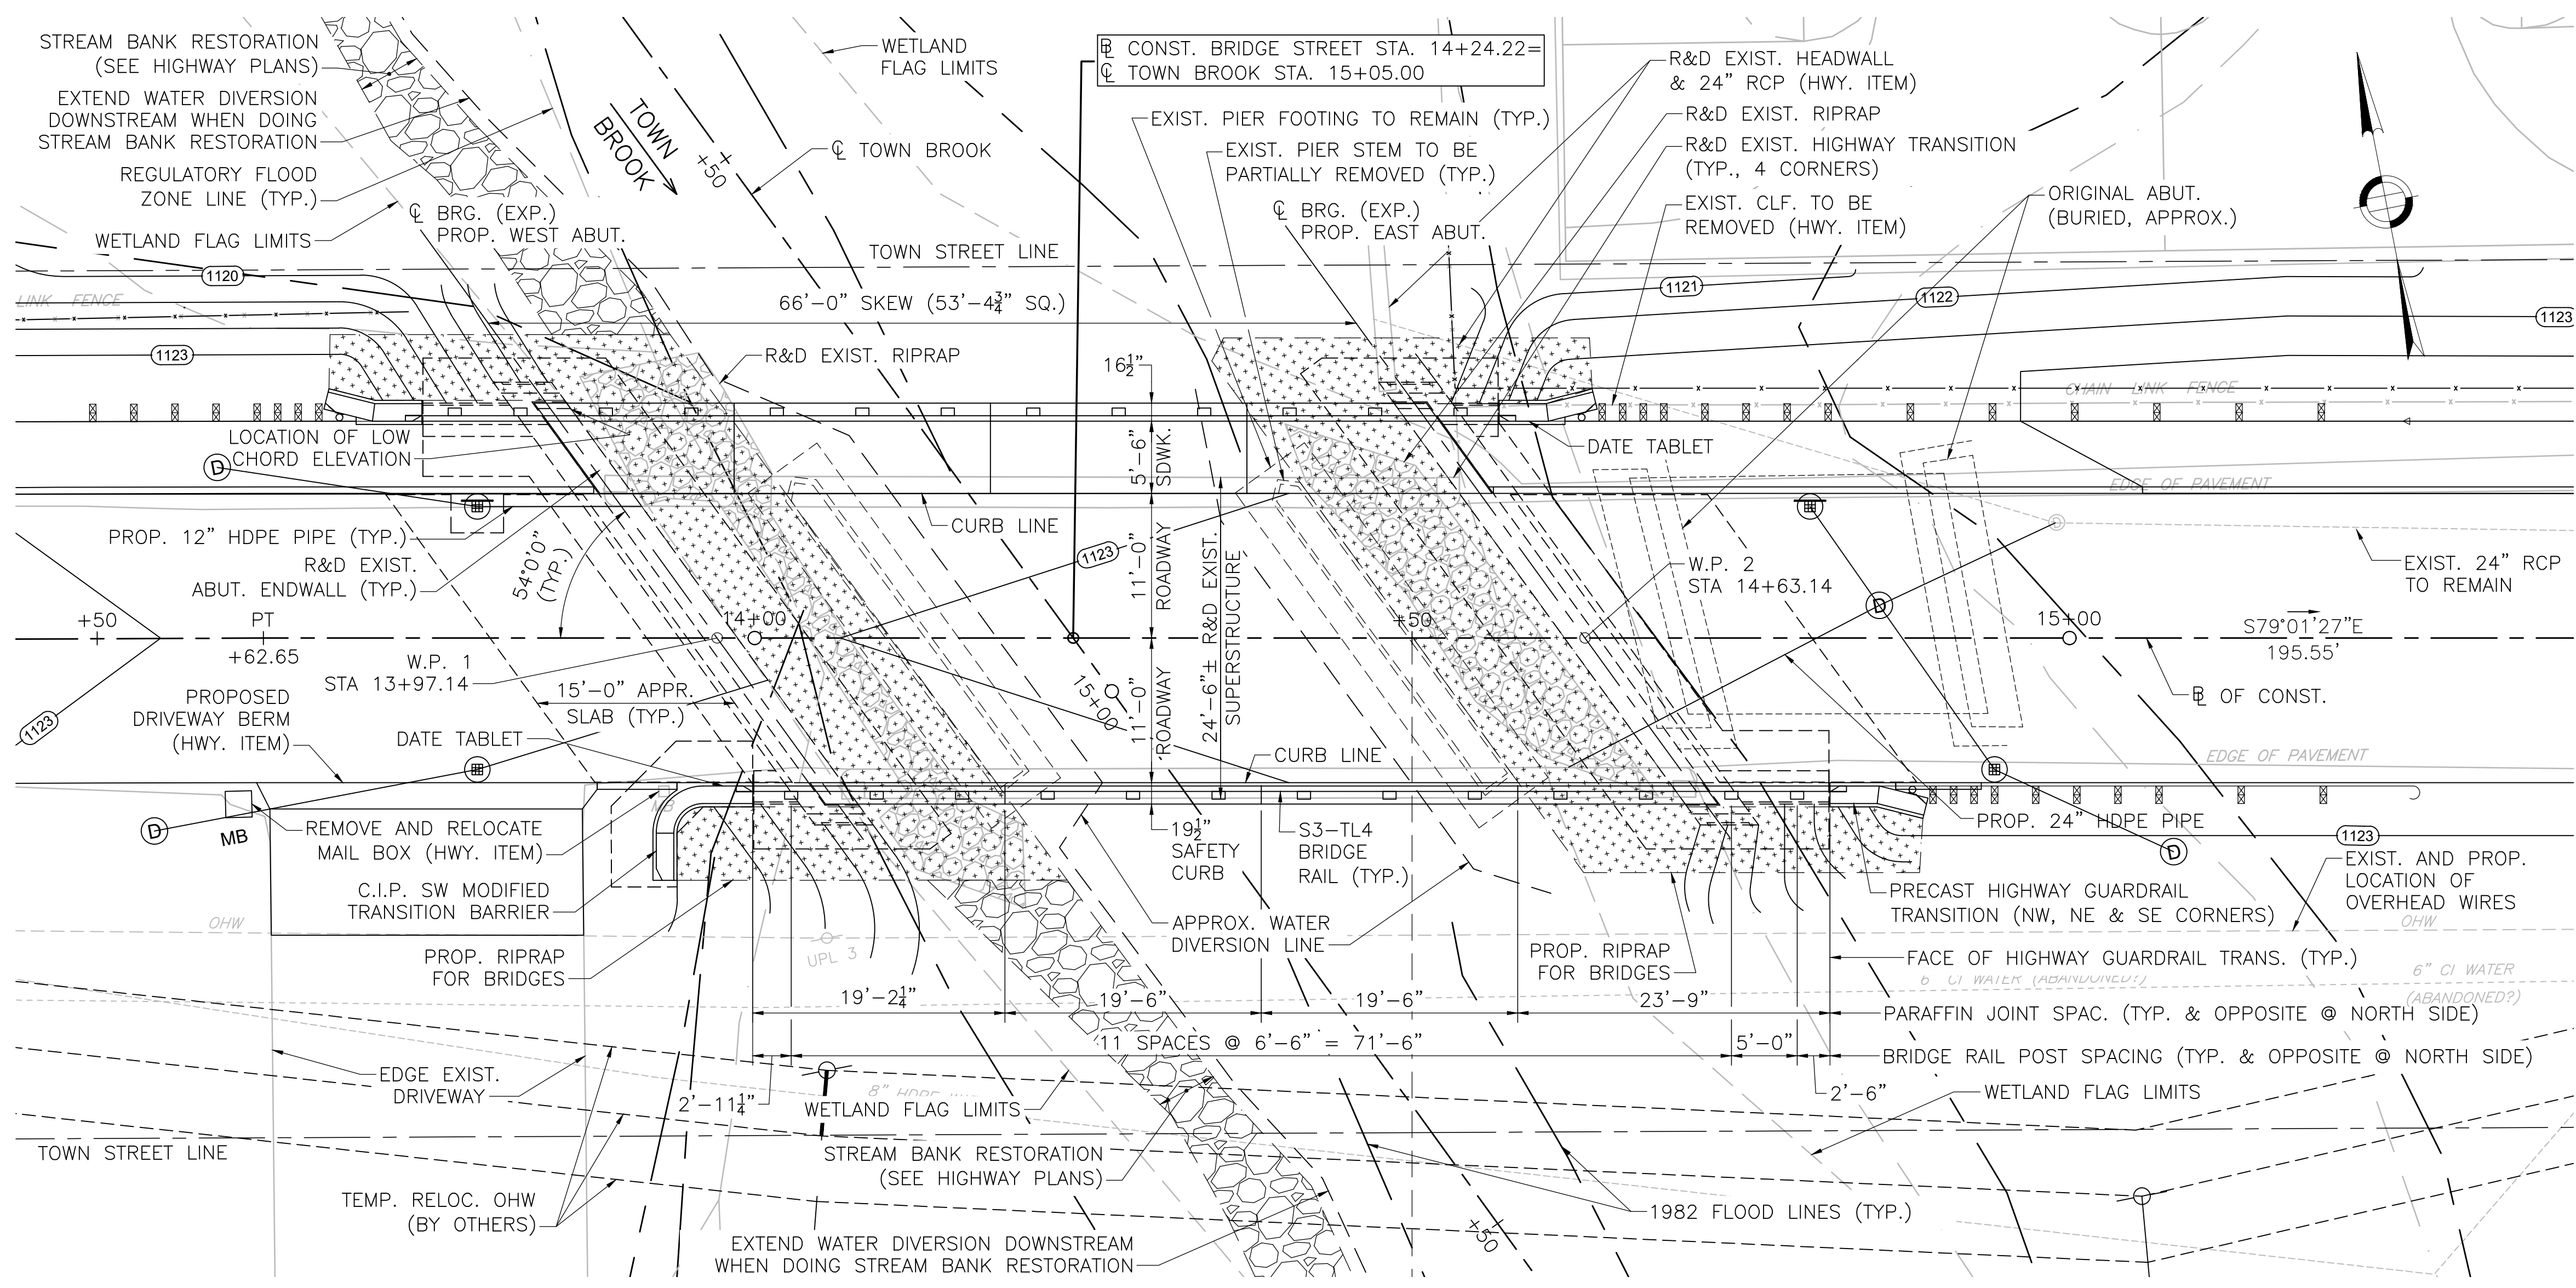 STREAM BANK RESTORATION
(SEE HIGHWAY PLANS)
EXTEND WATER DIVERSION
DOWNSTREAM WHEN DOING
STREAM BANK RESTORATION
REGULATORY FLOOD
ZONE LINE (TYP.)
WETLAND FLAG LIMITS
℄ BRG. (EXP.)
PROP. WEST ABUT.
TOWN
BROOK
+50
℄ TOWN BROOK
WETLAND
FLAG LIMITS
℄ CONST. BRIDGE STREET STA. 14+24.22=
℄ TOWN BROOK STA. 15+05.00
EXIST. PIER FOOTING TO REMAIN (TYP.)
EXIST. PIER STEM TO BE
PARTIALLY REMOVED (TYP.)
℄ BRG. (EXP.)
PROP. EAST ABUT.
R&D EXIST. HEADWALL
& 24" RCP (HWY. ITEM)
R&D EXIST. RIPRAP
R&D EXIST. HIGHWAY TRANSITION
(TYP., 4 CORNERS)
EXIST. CLF. TO BE
REMOVED (HWY. ITEM)
ORIGINAL ABUT.
(BURIED, APPROX.)
TOWN STREET LINE
1120
1121
1122
1123
LINK FENCE
1123
66'-0" SKEW (53'-4¾" SQ.)
R&D EXIST. RIPRAP
16½"
CHAIN LINK FENCE
LOCATION OF LOW
CHORD ELEVATION
D
5'-6"
SDWK.
DATE TABLET
EDGE OF PAVEMENT
PROP. 12" HDPE PIPE (TYP.)
R&D EXIST.
ABUT. ENDWALL (TYP.)
54°0'0"
(TYP.)
CURB LINE
1123
11'-0"
ROADWAY
24'-6"± R&D EXIST.
SUPERSTRUCTURE
W.P. 2
STA 14+63.14
D
EXIST. 24" RCP
TO REMAIN
+50
PT
+62.65
14+00
+50
15+00
S79°01'27"E
195.55'
W.P. 1
STA 13+97.14
15'-0" APPR.
SLAB (TYP.)
15+00
11'-0"
ROADWAY
℄ OF CONST.
PROPOSED
DRIVEWAY BERM
(HWY. ITEM)
1123
DATE TABLET
CURB LINE
EDGE OF PAVEMENT
MB
D
MB
REMOVE AND RELOCATE
MAIL BOX (HWY. ITEM)
C.I.P. SW MODIFIED
TRANSITION BARRIER
19½"
SAFETY
CURB
S3-TL4
BRIDGE
RAIL (TYP.)
PROP. 24" HDPE PIPE
D
1123
EXIST. AND PROP.
LOCATION OF
OVERHEAD WIRES
PRECAST HIGHWAY GUARDRAIL
TRANSITION (NW, NE & SE CORNERS)
OHW
OHW
UPL 3
APPROX. WATER
DIVERSION LINE
PROP. RIPRAP
FOR BRIDGES
PROP. RIPRAP
FOR BRIDGES
FACE OF HIGHWAY GUARDRAIL TRANS. (TYP.)
6" CI WATER (ABANDONED?)
6" CI WATER
(ABANDONED?)
19'-2¼"
19'-6"
19'-6"
23'-9"
PARAFFIN JOINT SPAC. (TYP. & OPPOSITE @ NORTH SIDE)
11 SPACES @ 6'-6" = 71'-6"
5'-0"
BRIDGE RAIL POST SPACING (TYP. & OPPOSITE @ NORTH SIDE)
EDGE EXIST.
DRIVEWAY
2'-11¼"
8" HDPE
WETLAND FLAG LIMITS
2'-6"
WETLAND FLAG LIMITS
TOWN STREET LINE
STREAM BANK RESTORATION
(SEE HIGHWAY PLANS)
TEMP. RELOC. OHW
(BY OTHERS)
1982 FLOOD LINES (TYP.)
+50
EXTEND WATER DIVERSION DOWNSTREAM
WHEN DOING STREAM BANK RESTORATION